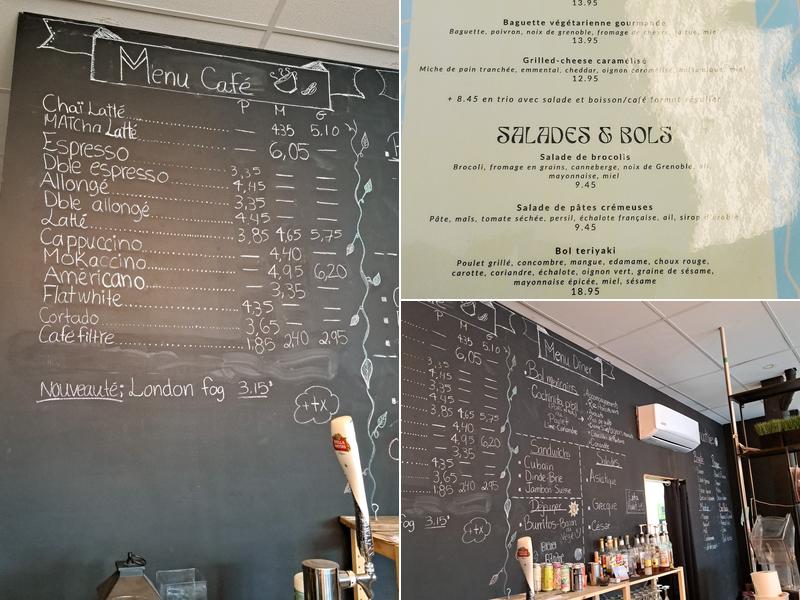 Menu Café
P M G
Chaï Latté ........ — 4.35 5.10
MATCha Latté ........ — 6,05 —
Espresso ........ 3,35 — —
Dble espresso ........ 4,45 — —
Allongé ........ 3,35 — —
Dble allongé ........ 4.45 — —
Latté ........ 3,85 4,65 5,75
Cappuccino ........ — 4,40 —
Mokaccino ........ — 4,95 6,20
Américano ........ — 3,35 —
Flat white ........ 4,35 — —
Cortado ........ 3,65 — —
Café filtre ........ 1.85 2.40 2.95
Nouveauté; London fog 3.15$
++tx
13.95
Baguette végétarienne gourmande
Baguette, poivron, noix de grenoble, fromage de chèvre, laitue, miel
12.95
Grilled-cheese caramélisé
Miche de pain tranchée, emmental, cheddar, oignon caramélisé
12.95
+ 8.45 en trio avec salade et boisson/café format régulier
SALADES & BOLS
Salade de brocolis
Brocoli, fromage en grains, canneberge, noix de Grenoble, ail,
mayonnaise, miel
9.45
Salade de pâtes crémeuses
Pâte, maïs, tomate séchée, persil, échalote française, ail, sirop d'érable
9.45
Bol teriyaki
Poulet grillé, concombre, mangue, edamame, choux rouge,
carotte, coriandre, échalote, oignon vert, graine de sésame,
mayonnaise épicée, miel, sésame
18.95
P M G
4.35 5.10
6,05 —
3,35 — —
4,45 — —
3,35 — —
4.45 — —
3,85 4,65 5,75
— 4,40 —
— 4,95 6,20
— 3,35 —
4,35 — —
3,65 — —
1.85 2.40 2.95
fog 3.15$
++tx
Menu Dîner
Bol mexicains
Cochinita pibil
Poulet
Lime-Coriandre
Accompagnements
Sandwichs
Cubain
Dinde-Brie
Jambon Suisse
Salades
Asiatique
Grecque
César
Déjeuner
Burritos-Bacon
Végé